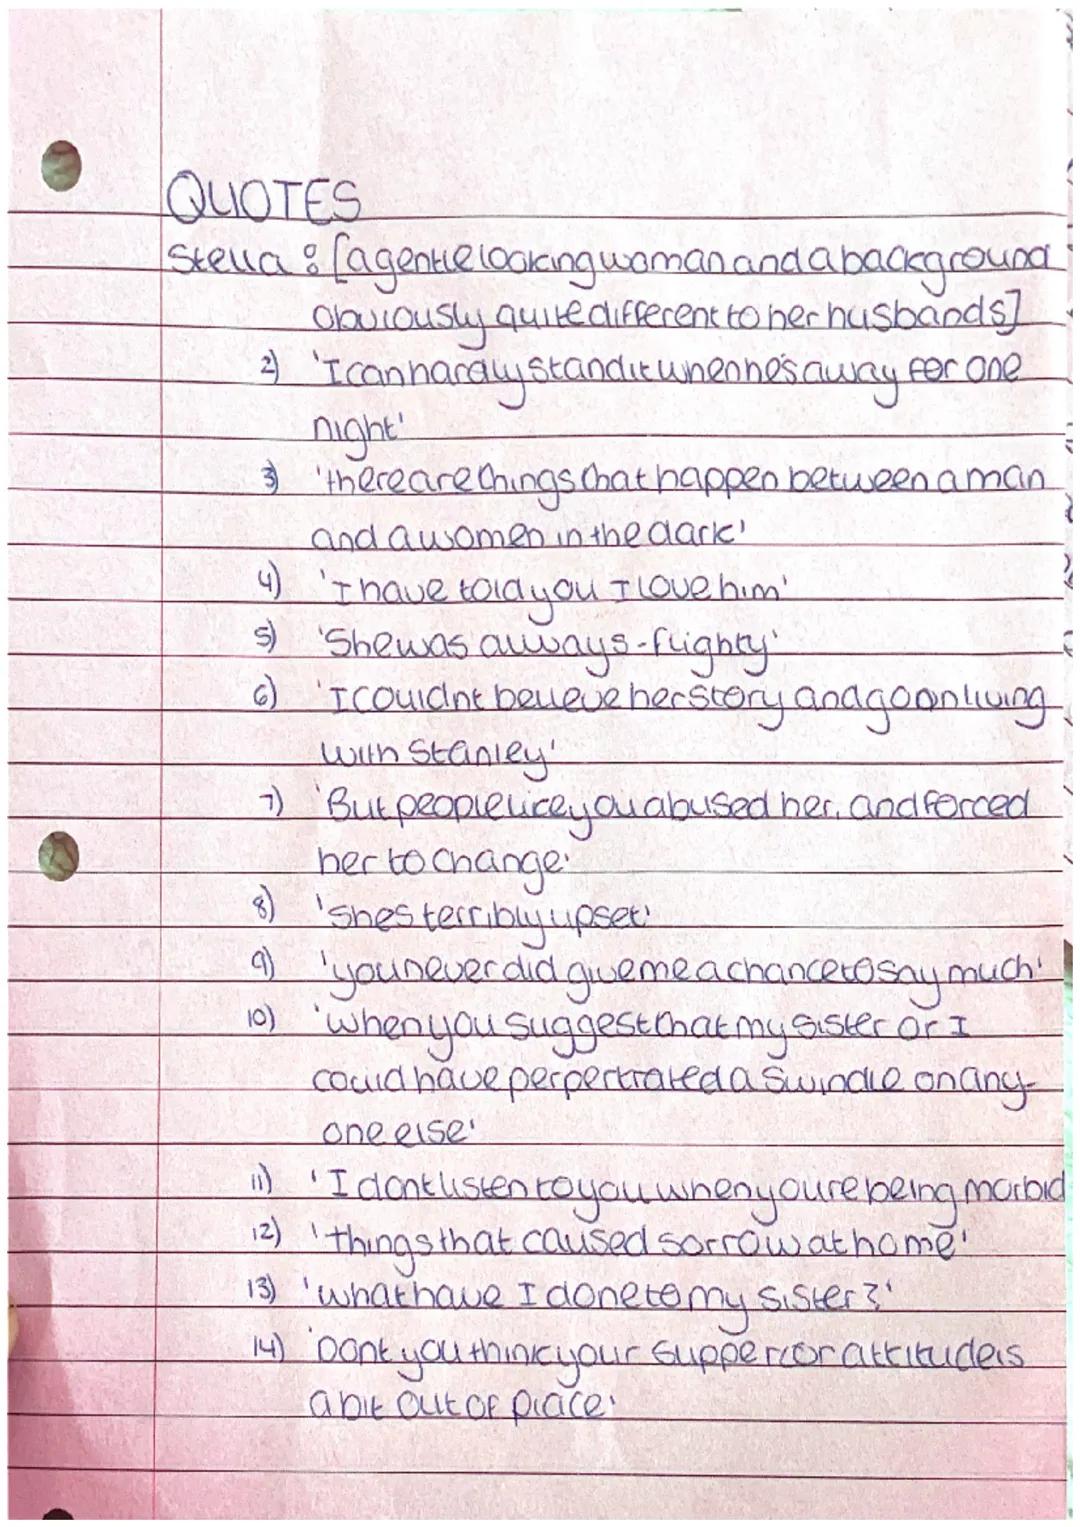 QUOTES
Stella : [a gentle looking woman and a background
obviously quite different to her husbands]
2) 'I can hardly stand it when he's away for one
night'
3) 'there are things that happen between a man
and a women in the dark'
4) 'I have told you I love him'
5) 'She was always - flighty'
6) 'I couldnt believe her story and go on living
with Stanley'
7) 'But people like you abused her, and forced
her to change'
8) 'shes terribly upset'
9) 'you never did give me a chance to say much'
10) 'when you suggest that my sister or I
could have perpertrated a swindle on any-
one else'
11) 'I dont listen to you when youre being morbid
12) 'things that caused sorrow at home'
13) 'what have I done to my sister?'
14) 'Dont you think your supperior attitude is
a bit out of place'